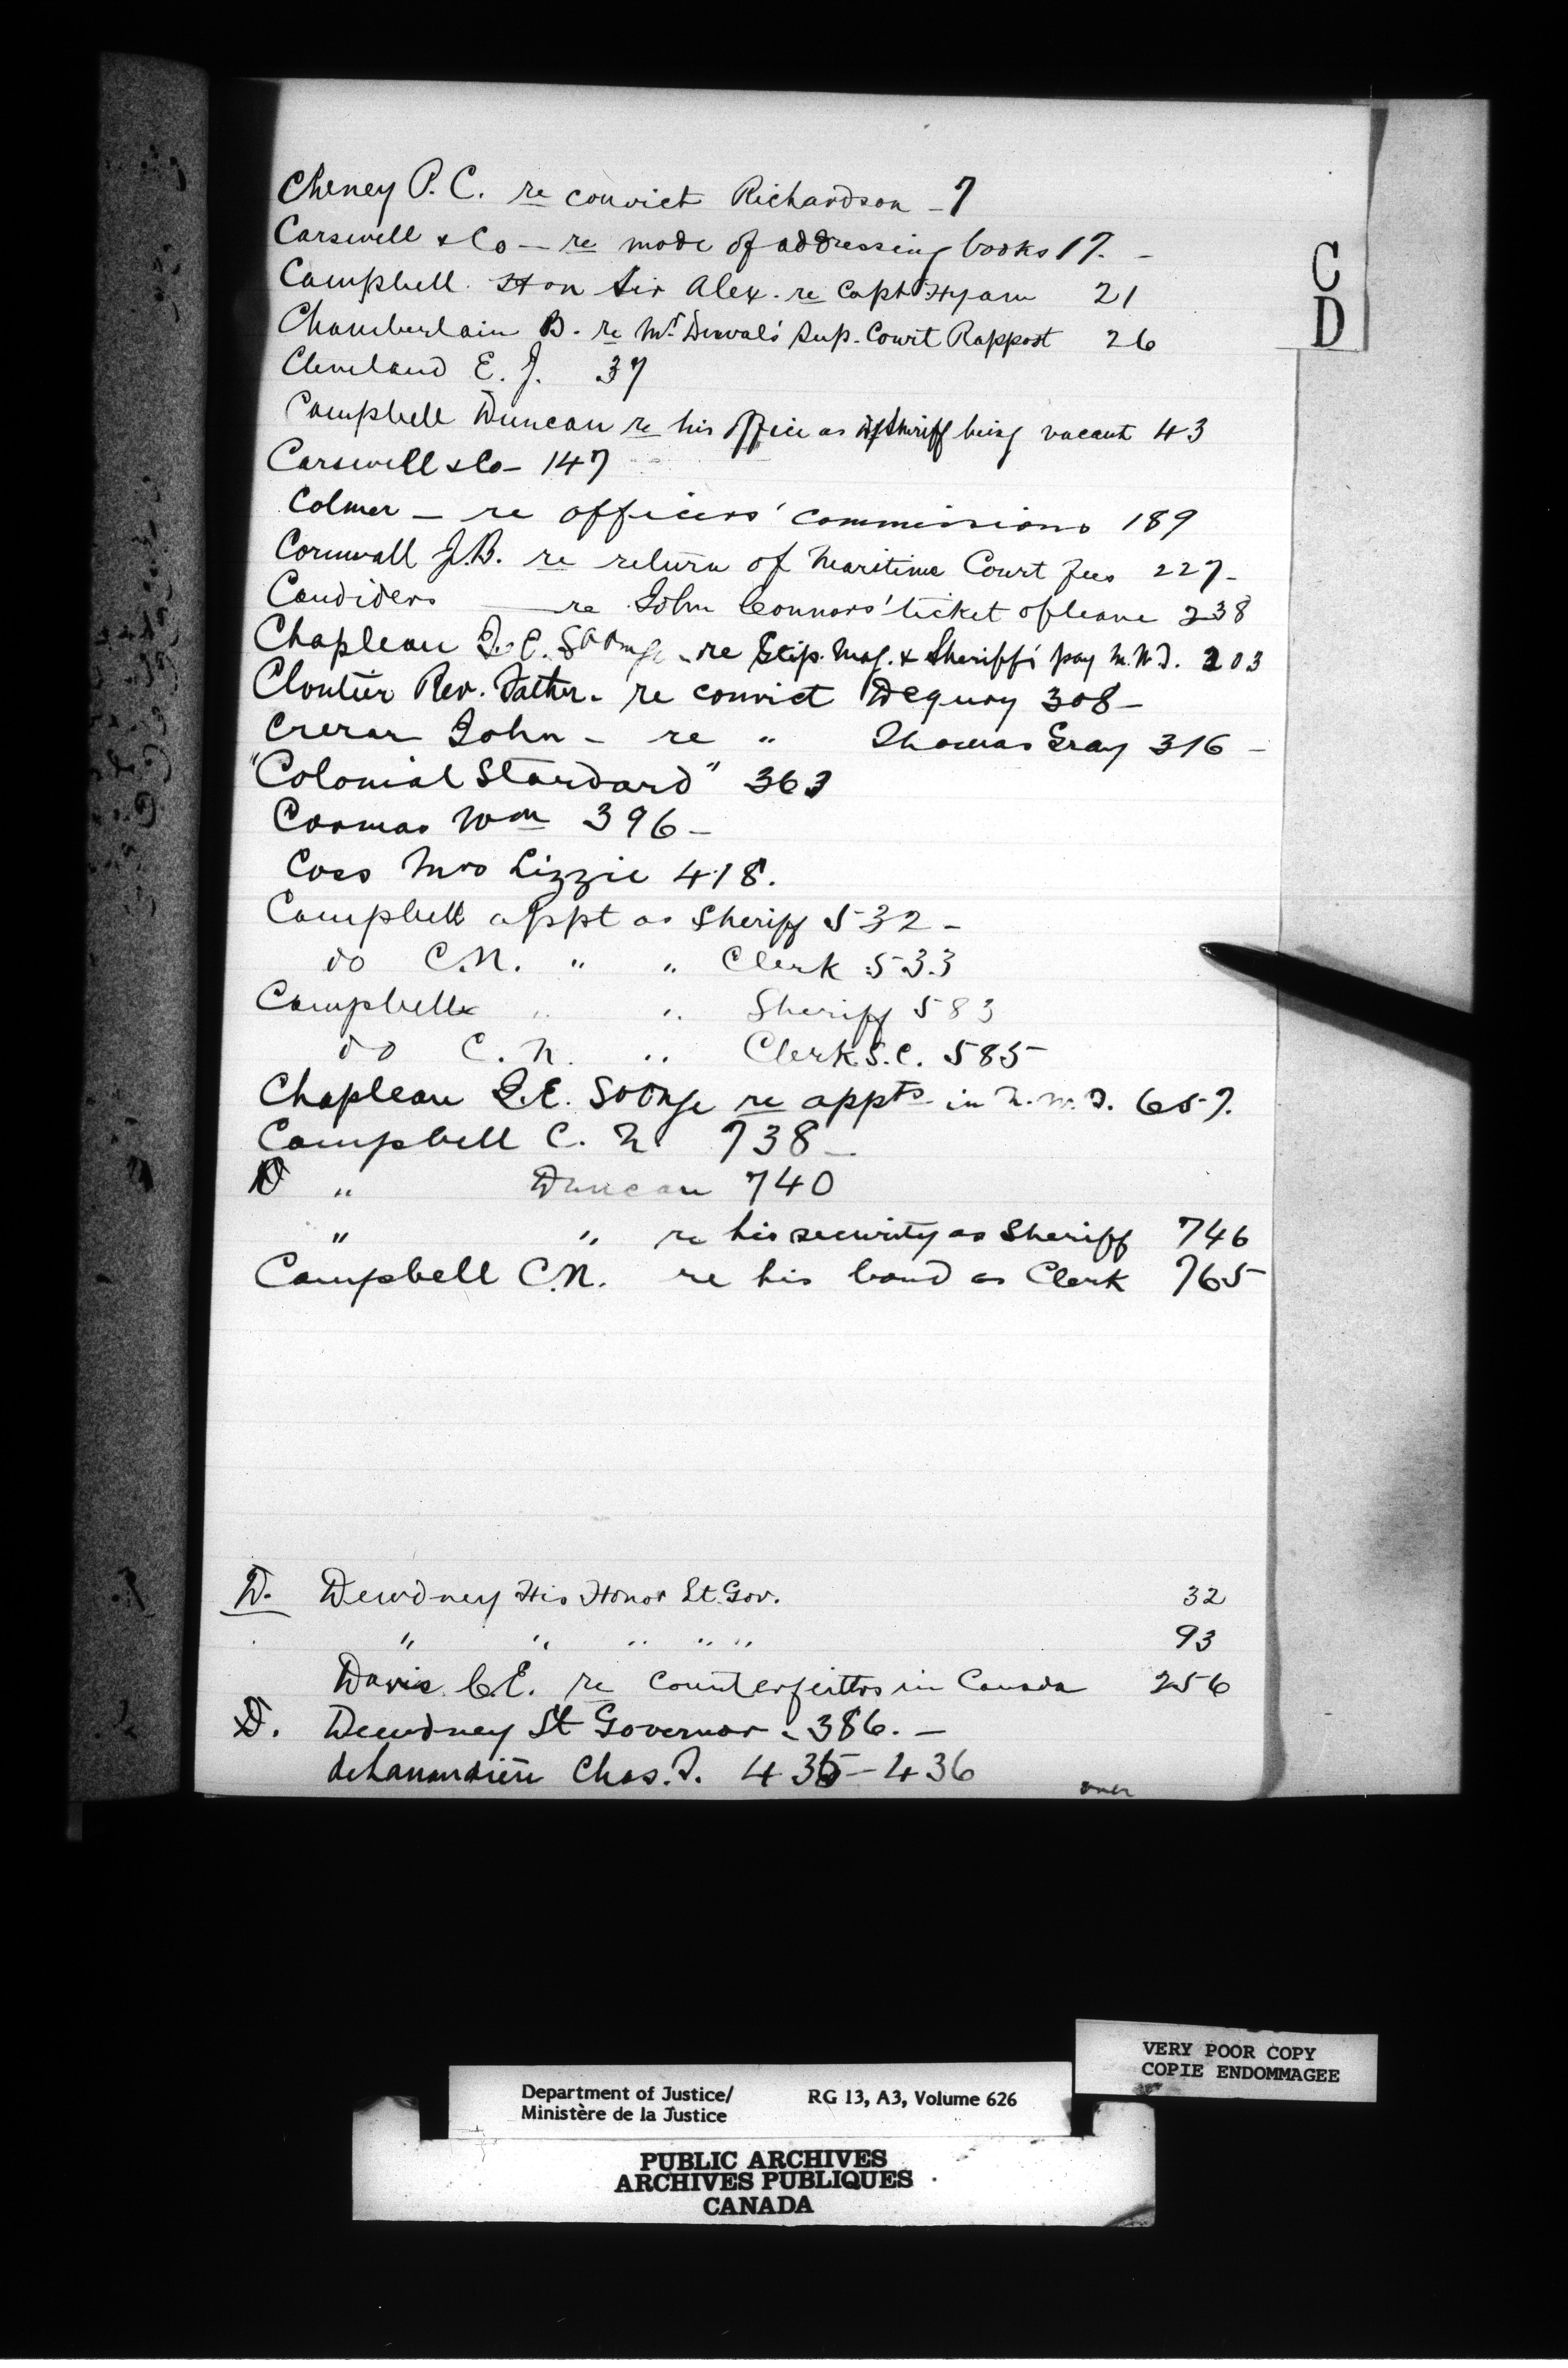 Cheney P. C. re convict Richardson - 7
Carswell & Co - re mode of addressing books 17. -
Campbell Hon Sir Alex. re Capt Hyam 21
Chamberlain B. re Mr Duval's Sup. Court Rapport 26
Cleveland E. J. 37
Campbell Duncan re his office as Sheriff being vacant 43
Carswell & Co - 147
Colmer - re officers' commissions 189
Cornwall J.B. re return of Maritime Court fees 227 -
Candiders re John Connors' ticket of leave 238
Chapleau re Stip. Mag. & Sheriff's pay N.W.T. 203
Cloutier Rev. Father - re convict Dequoy 308 -
Crerar John - re " Thomas Gray 316 -
"Colonial Standard" 363
Cormac Wm 396 -
Coss Mrs Lizzie 418.
Campbell appt as Sheriff 532 -
do C.N. " " Clerk 533
Campbell " " Sheriff 583
do C. N. " Clerk S.C. 585
Chapleau re appts in N.W.T. 657.
Campbell C. N 738 -
D " Duncan 740
" " re his security as Sheriff 746
Campbell C.N. re his bond as Clerk 765
C
D
D. Dewdney His Honor Lt. Gov. 32
" " " " " 93
Davis C.E. re counterfeitors in Canada 256
D. Dewdney Lt Governor - 386. -
Chas. T. 435 - 436
over
VERY POOR COPY
COPIE ENDOMMAGEE
Department of Justice/ RG 13, A3, Volume 626
Ministère de la Justice
PUBLIC ARCHIVES
ARCHIVES PUBLIQUES
CANADA